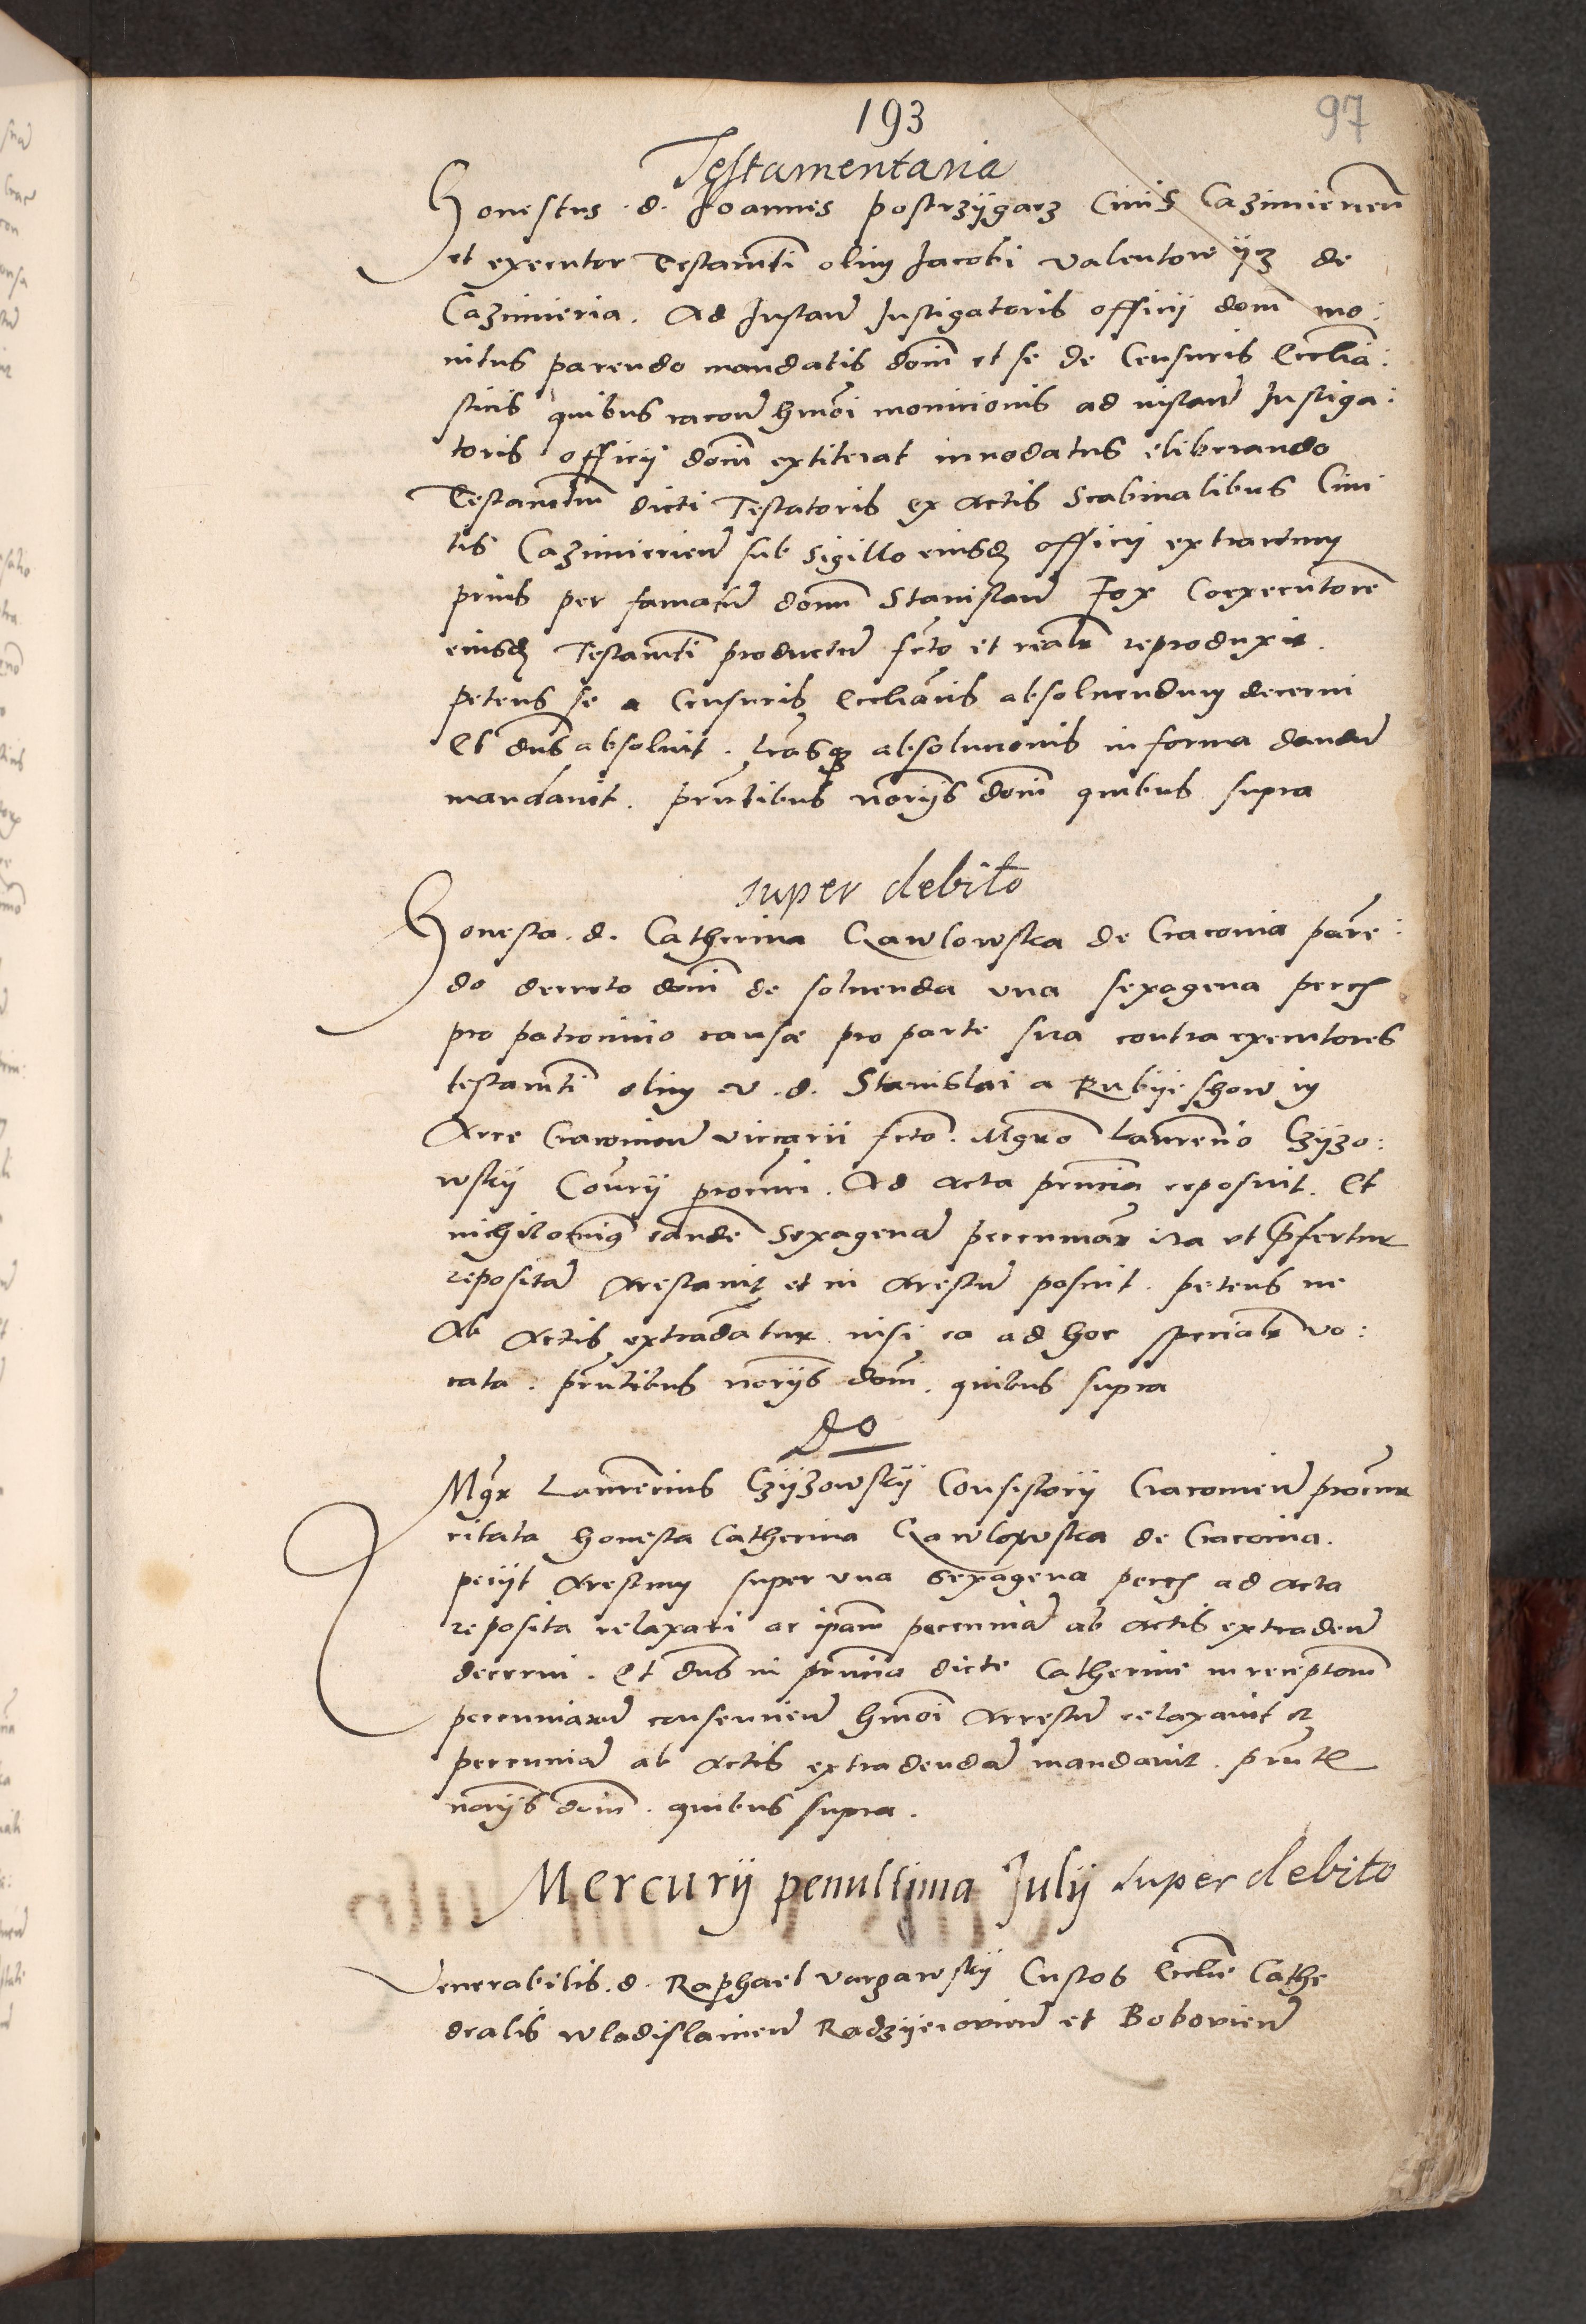 193
97
Testamentaria
Honestus d. Joannes postrzygacz Civis Cazimiernen
et executor Testamti olim Jacobi valentowijcz de
Cazimieria. Ad Instan Instigatoris officij dom mo:
nitus parendo mandatis dom et se de Censuris Ecclia:
sticis quibus racone hmoi monicionis ad instan Instiga:
toris officij dom extiterat innodatus eliberando
Testamtum dicti Testatoris ex Actis Scabinalibus Civi
tis Cazimierien sub sigillo eiusd officij extractum
prius per famatu domi Stanislau Fox Coexecutore
eiusd Testamti productu scto et realr reproduxit.
petens se a Censuris Eccliasticis absoluendum decerni
Et dns absoluit. lrasq absolucionis in forma dandu
mandauit. pntibus notrijs dom quibus supra
super debito
Honesta d. Catherina Gawlowska de Cracovia pare:
do decreto dom de soluenda vna sexagena pecu
pro patrocinio causæ pro parte sua contra executores
testamti olim v. d. Stanislai a Rubijeschow in
Arce Cracovien viccarij scto. Mgro Laurencio Czyzo:
wskij Coisrij procuri. Ad acta pntia reposuit. Et
nichilominus eande Sexagena pecuniar ita ut pfertur
reposita Arestauit et in Arestu posuit. petens ne
Ab Actis extradatur nisi ea ad hoc specialr vo:
cata. pntibus notrijs dom. quibus supra
do
Mgr Laurencius Czijzowskij Consistorij Cracovien procur
citata honesta Catherina Gawlowska de Cracovia.
petijt Arestum super vna sexagena pecu ad acta
reposita relaxari ac ipam pecunia ab actis extraden
decerni. Et dns in pntia dicte Catherine in receptom
pecuniaru consencien hmoi Arrestu relaxauit et
pecunia ab actis extradenda mandauit. pntibus
notrijs dom. quibus supra.
Mercurij penultima Julij super debito
Venerabilis. d. Raphael vargawskij Custos Ecclie Cathe
dralis Wladislauien Radzijeiovien et Bobovien